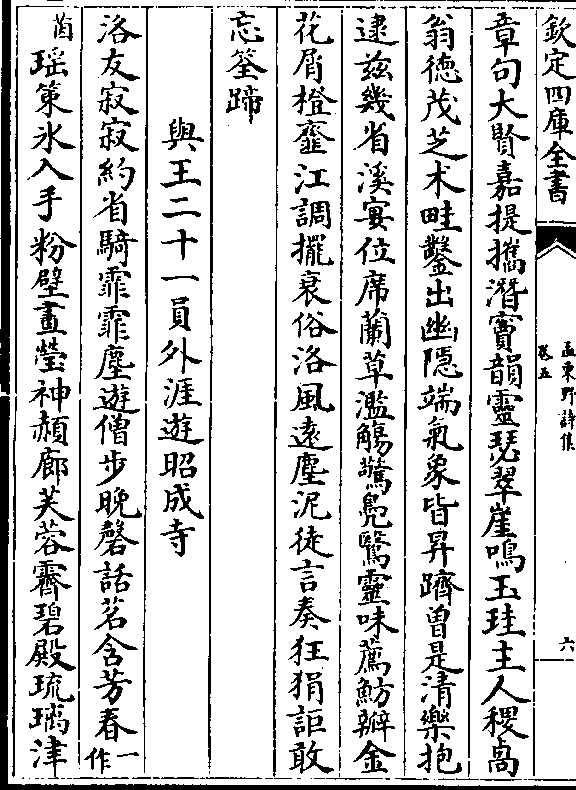 欽定四庫全書
孟東野詩集
卷五
六
章句大賢嘉提攜潛竇韻靈瑟翠崖鳴玉珪主人稷卨
翁德茂芝朮畦鑿出幽隱端氣象皆昇躋曽是清樂抱
逮兹幾省溪宴位席蘭草濫觴驚鳧鷖靈味薦魴瓣金
花屑橙虀江調擺衰俗洛風逺塵泥徒言奏狂狷詎敢
忘筌蹄
與王二十一員外涯遊昭成寺
洛友寂寂約省騎霏霏塵遊僧步晚磬話茗含芳春一作
茵瑶策氷入手粉壁畫瑩神赬廊芙蓉霽碧殿琉璃津